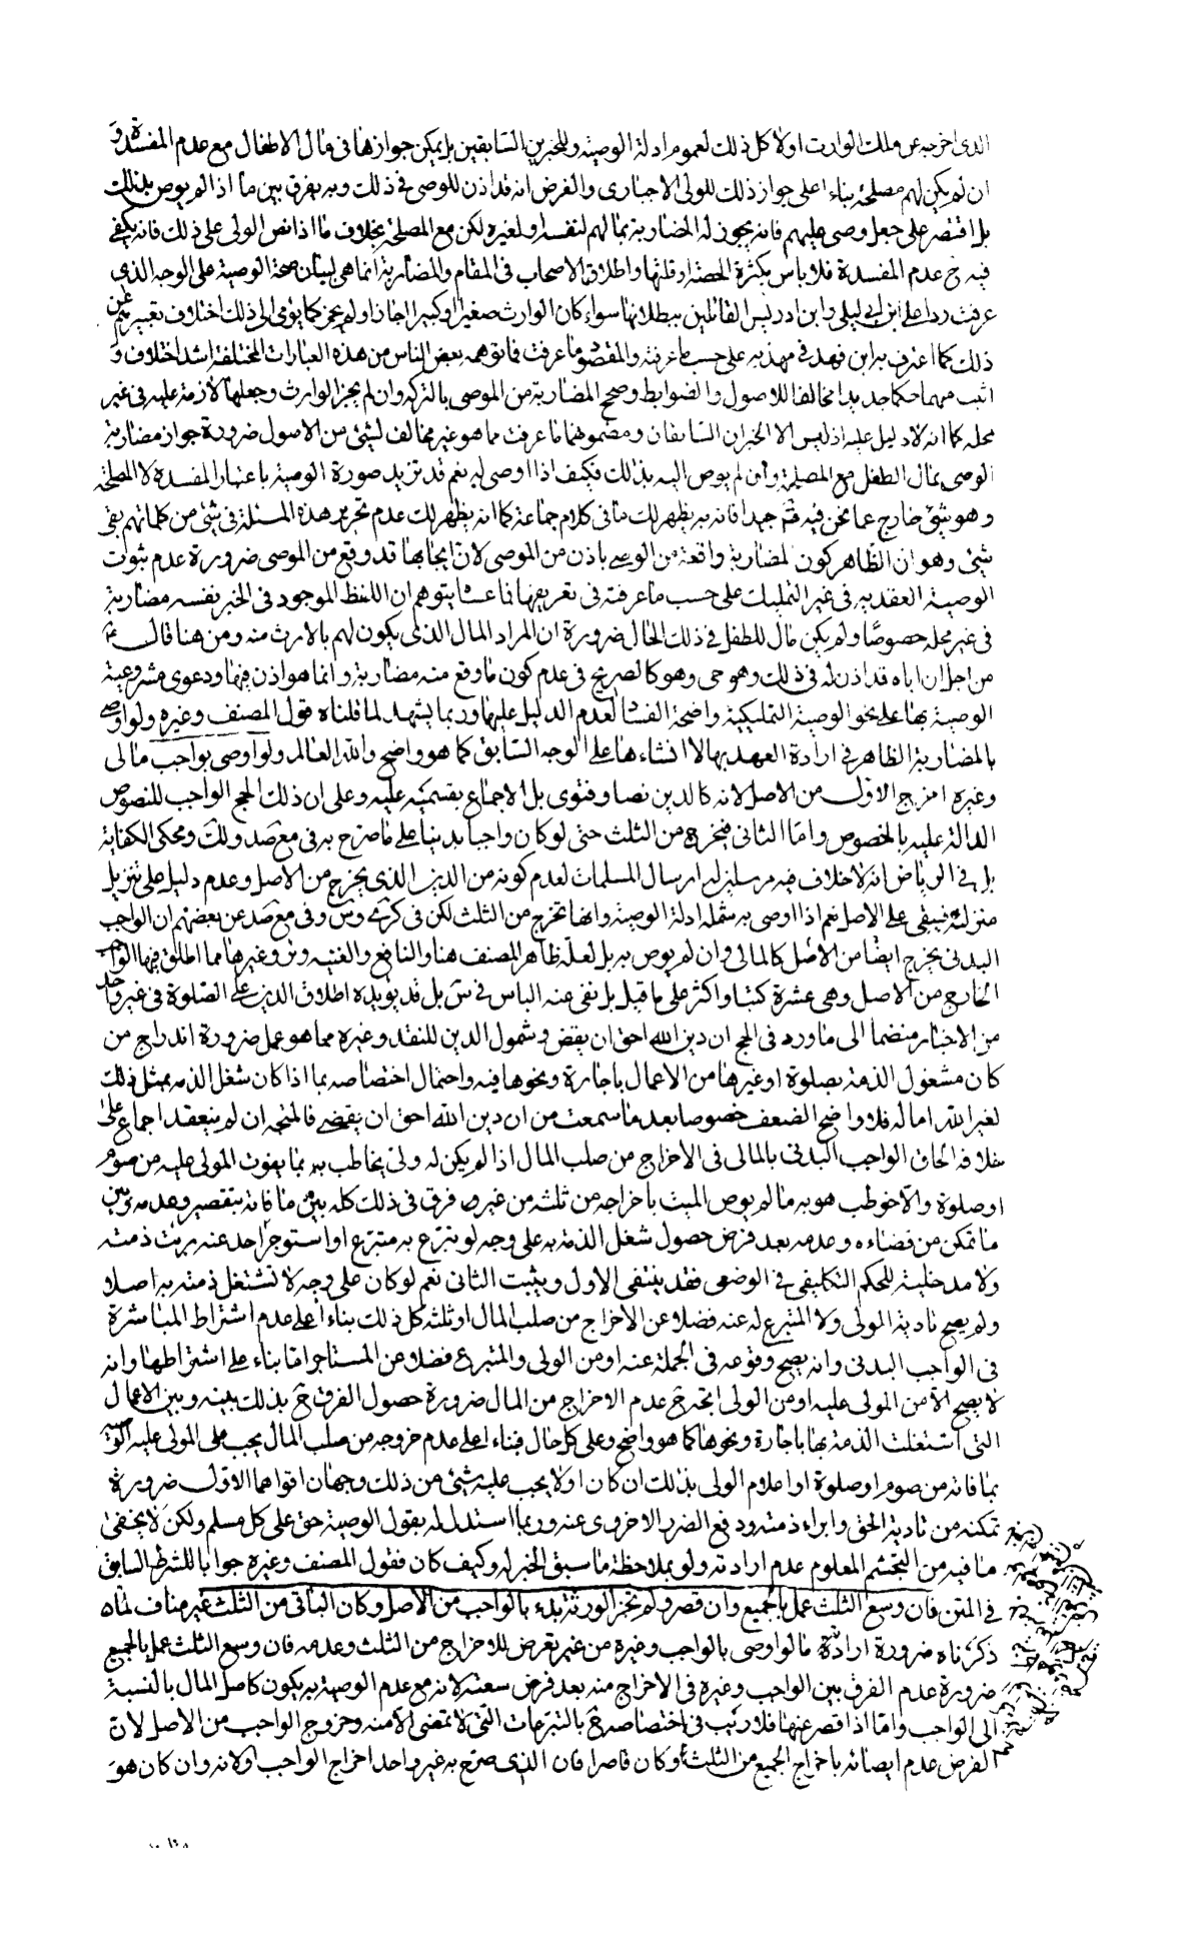 الذى اخرجه عن ملك الوارث اولا كل ذلك لعموم ادلة الوصية وللخبرين السابقين بل يمكن جوازها فى مال الاطفال مع عدم المفسدة و
ان لم يكن لهم مصلحة بناء على جواز ذلك للولى الاجبارى والفرض انه قد اذن للوصى فى ذلك وبه يفرق بين ما اذا لم يوص بذلك
بل اقتصر على جعل وصى عليهم فانه يجوز له المضاربة بمالهم لنفسه او لغيره لكن مع المصلحة بخلاف ما اذا نص الولى على ذلك فانه يكفى
فيه ح عدم المفسدة فلا باس بكثرة الحصة او قلتها واطلاق الاصحاب فى المقام والمضاربة انما هى لبيان صحة الوصية على الوجه الذى
عرفت ردا على ابن ابى ليلى وابن ادريس القائلين ببطلانها سواء كان الوارث صغيرا او كبيرا اجاز او لم يجز كما يؤمى الى ذلك اختلاف تعبيرهم عن
ذلك كما اعترف به ابن فهد فى مهذبه على حسب ما عرفته والمقصود ما عرفت فما توهمه بعض الناس من هذه العبارات المختلفة اشد اختلاف و
اثبت منها حكما جديدا مخالفا للاصول والضوابط وصحح المضاربة من الموصى بالتركة وان لم يجز الوارث وجعلها لازمة عليه فى غير
محله كما انه لا دليل عليه اذ ليس الا الخبران السابقان ومضمونهما ما عرفت مما هو غير مخالف لشئ من الاصول ضرورة جواز مضاربة
الوصى بمال الطفل مع المصلحة وان لم يوص اليه بذلك فكيف اذا اوصى له نعم قد تزيد صورة الوصية باعتبار المفسدة لا المصلحة
وهو شئ خارج عما نحن فيه فتم جيدا فانه به يظهر لك ما فى كلام جماعة كما انه يظهر لك عدم تحرير هذه المسئلة فى شئ من كلماتهم بقى
شئ وهو ان الظاهر كون المضاربة واقعة من الوصى باذن من الموصى لا ان ايجابها قد وقع من الموصى ضرورة عدم ثبوت
الوصية العقدية فى غير التمليك على حسب ما عرفته فى تعريفها فما عساه يتوهم ان اللفظ الموجود فى الخبر بنفسه مضاربة
فى غير محله خصوصا ولم يكن مال للطفل فى ذلك الحال ضرورة ان المراد المال الذى يكون لهم بالارث منه ومن هنا قال ع
من اجل ان اباه قد اذن له فى ذلك وهو حى وهو كالصريح فى عدم كون ما وقع منه مضاربة وانما هو اذن فيها ودعوى مشروعية
الوصية بها على نحو الوصية التمليكية واضحة الفساد لعدم الدليل عليها وربما يشهد لما قلناه قول المصنف وغيره ولو اوصى
بالمضاربة الظاهر فى ارادة العهد بها لا انشاءها على الوجه السابق كما هو واضح والله العالم ولو اوصى بواجب مالى
وغيره اخرج الاول من الاصل لانه كالدين نصا وفتوى بل الاجماع بقسميه عليه وعلى ان ذلك الحج الواجب للنصوص
الدالة عليه بالخصوص واما الثانى فيخرج من الثلث حتى لو كان واجبا بدنيا على ما صرح به فى مع صد ولك ومحكى الكفاية
بل فى الرياض انه لا خلاف فيه مرسلين له ارسال المسلمات لعدم كونه من الدين الذى يخرج من الاصل وعدم دليل على تنزيل
منزلته فيبقى على الاصل نعم اذا اوصى به شمله ادلة الوصية وانها تخرج من الثلث لكن فى كرة وس وفى مع صد عن بعضهم ان الواجب
البدنى يخرج ايضا من الاصل كالمالى وان لم يوص به بل لعله ظاهر المصنف هنا والنافع والغنيه وئر وغيرها مما اطلق فيها الواجب
الخارج من الاصل وهى عشرة كتب او اكثر على ما قيل بل نفى عنه الباس فى س بل قد يؤيده اطلاق الدين على الصلوة فى غير واحد
من الاخبار منضما الى ما ورد فى الحج ان دين الله احق ان يقضى وشمول الدين للنقد وغيره مما هو عمل ضرورة اندراج من
كان مشغول الذمة بصلوة او غيرها من الاعمال باجارة ونحوها فيه واحتمال اختصاصه بما اذا كان شغل الذمه بمثل ذلك
لغير الله اما له فلا واضح الضعف خصوصا بعد ما سمعت من ان دين الله احق ان يقضى فالمتجه ان لم ينعقد اجماع على
خلافه الحاق الواجب البدنى بالمالى فى الاخراج من صلب المال اذا لم يكن له ولى يخاطب به بما يفوت المولى عليه من صوم
او صلوة والا خوطب هو به ما لم يوص الميت باخراجه من ثلثه من غير فرق فى ذلك كله بين ما فاته بتقصير وعدمه وبين
ما تمكن من قضاءه وعدمه بعد فرض حصول شغل الذمة به على وجه لو تبرع به متبرع او استوجر احد عنه برئت ذمته
ولا مدخلية للحكم التكليفى فى الوضعى فقد ينتفى الاول ويثبت الثانى نعم لو كان على وجه لا تشتغل ذمته به اصلا
ولم يصح تادية الولى ولا المتبرع له عنه فضلا عن الاخراج من صلب المال او ثلثه كل ذلك بناء على عدم اشتراط المباشرة
فى الواجب البدنى وانه يصح وقوعه فى الجملة عنه او من الولى والمتبرع فضلا عن المستاجر اما بناء على اشتراطها وانه
لا يصح الا من المولى عليه او من الولى اتجه ح عدم الاخراج من المال ضرورة حصول الفرق ح بذلك بينه وبين الاعمال
التى اشتغلت الذمة بها باجارة ونحوها كما هو واضح وعلى كل حال فبناء على عدم خروجه من صلب المال يجب على المولى عليه الوصية
بما فاته من صوم او صلوة او اعلام الولى بذلك ان كان او لا يجب عليه شئ من ذلك وجهان اقواهما الاول ضرورة
تمكنه من تادية الحق وابراء ذمته ودفع الضرر الاخروى عنه وربما استدل له بقول الوصية حق على كل مسلم ولكن لا يخفى
ما فيه من التجشم المعلوم عدم ارادته ولو بملاحظة ما سبق الخبر له وكيف كان فقول المصنف وغيره جوابا للشرط السابق
فى المتن فان وسع الثلث عمل بالجميع وان قصر ولم تجز الورثة بدء بالواجب من الاصل وكان الباقى من الثلث غير مناف لما
ذكرناه ضرورة ارادته ما لو اوصى بالواجب وغيره من غير تعرض للاخراج من الثلث وعدمه فان وسع الثلث عمل بالجميع
ضرورة عدم الفرق بين الواجب وغيره فى الاخراج منه بعد فرض سعته لانه مع عدم الوصية به يكون كاصل المال بالنسبة
الى الواجب واما اذا قصر عنها فلا ريب فى اختصاصه ح بالتبرعات التى لا تمضى الا منه وخروج الواجب من الاصل لان
الفرض عدم ايصائه باخراج الجميع من الثلث او كان قاصرا فان الذى صرح به غير واحد اخراج الواجب اولا منه وان كان هو